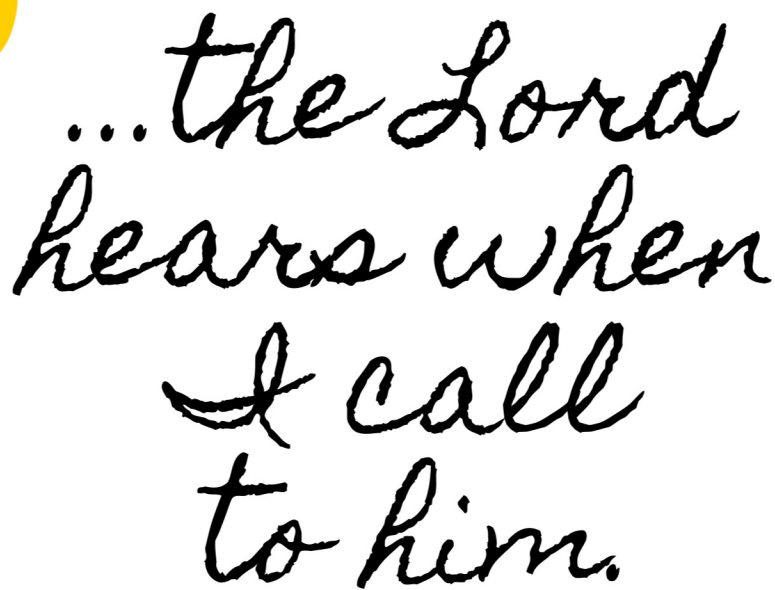 ...the Lord
hears when
I call
to him.